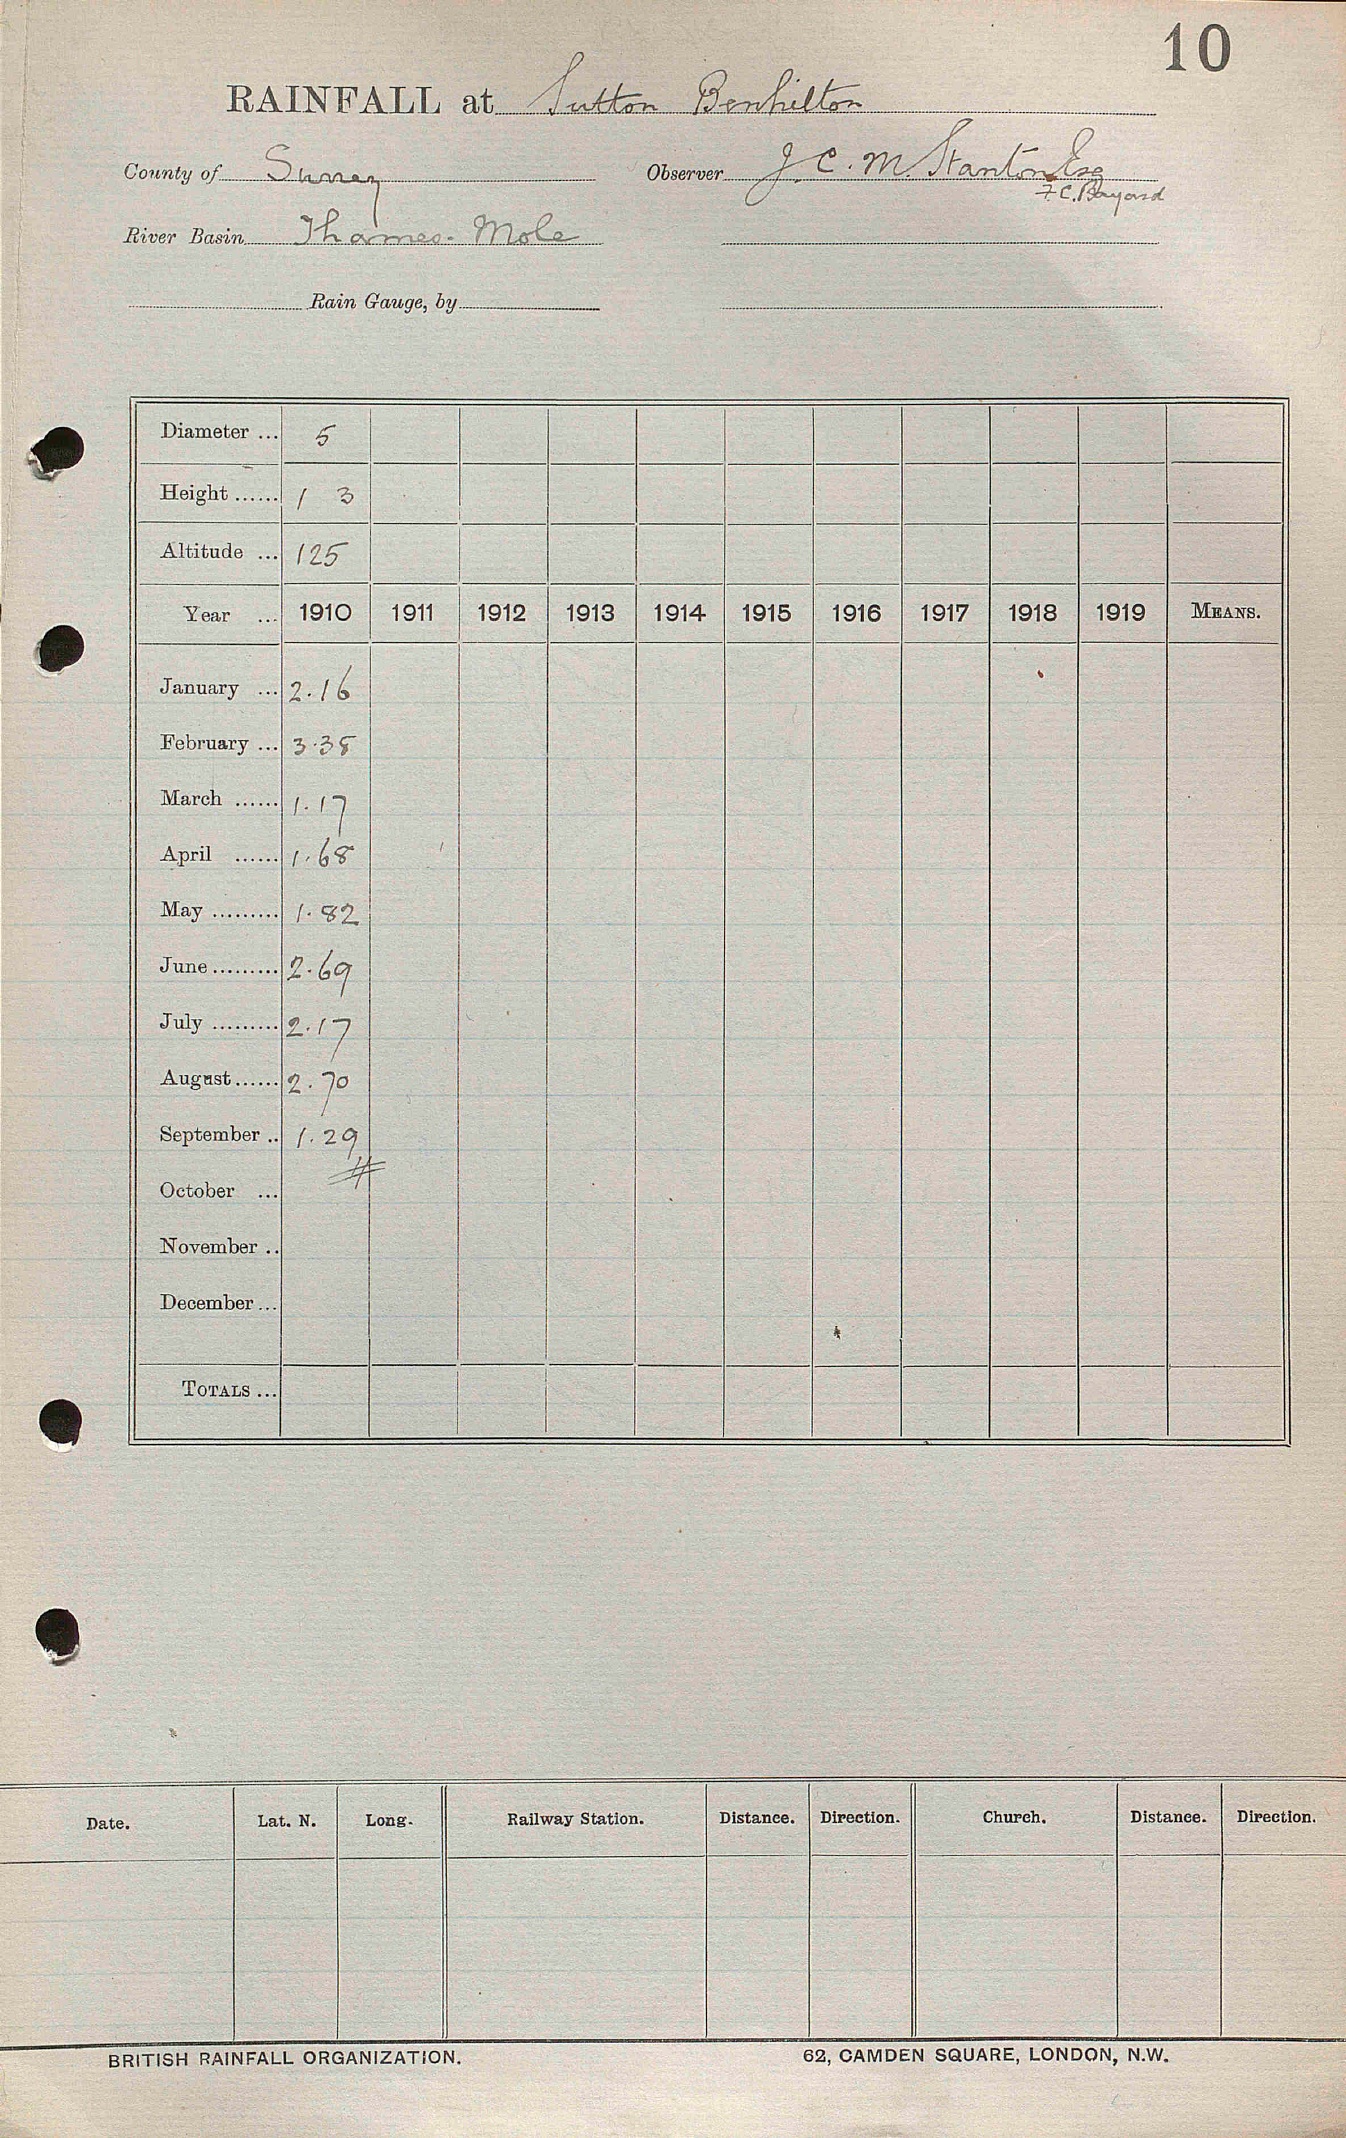 10
RAINFALL at Sutton Benhilton
County of Surrey Observer J. C. M. Stanton Esq
F. C. Bayard
River Basin Thames. Mole
Rain Gauge, by
Diameter ... 5
Height ...... 1 3
Altitude ... 125
Year ... 1910 1911 1912 1913 1914 1915 1916 1917 1918 1919 MEANS.
January ... 2.16
February ... 3.38
March ...... 1.17
April ...... 1.68
May ......... 1.82
June ......... 2.69
July ......... 2.17
August ...... 2.70
September .. 1.29
October ...
November ..
December ...
TOTALS ...
Date. Lat. N. Long. Railway Station. Distance. Direction. Church. Distance. Direction.
BRITISH RAINFALL ORGANIZATION. 62, CAMDEN SQUARE, LONDON, N.W.